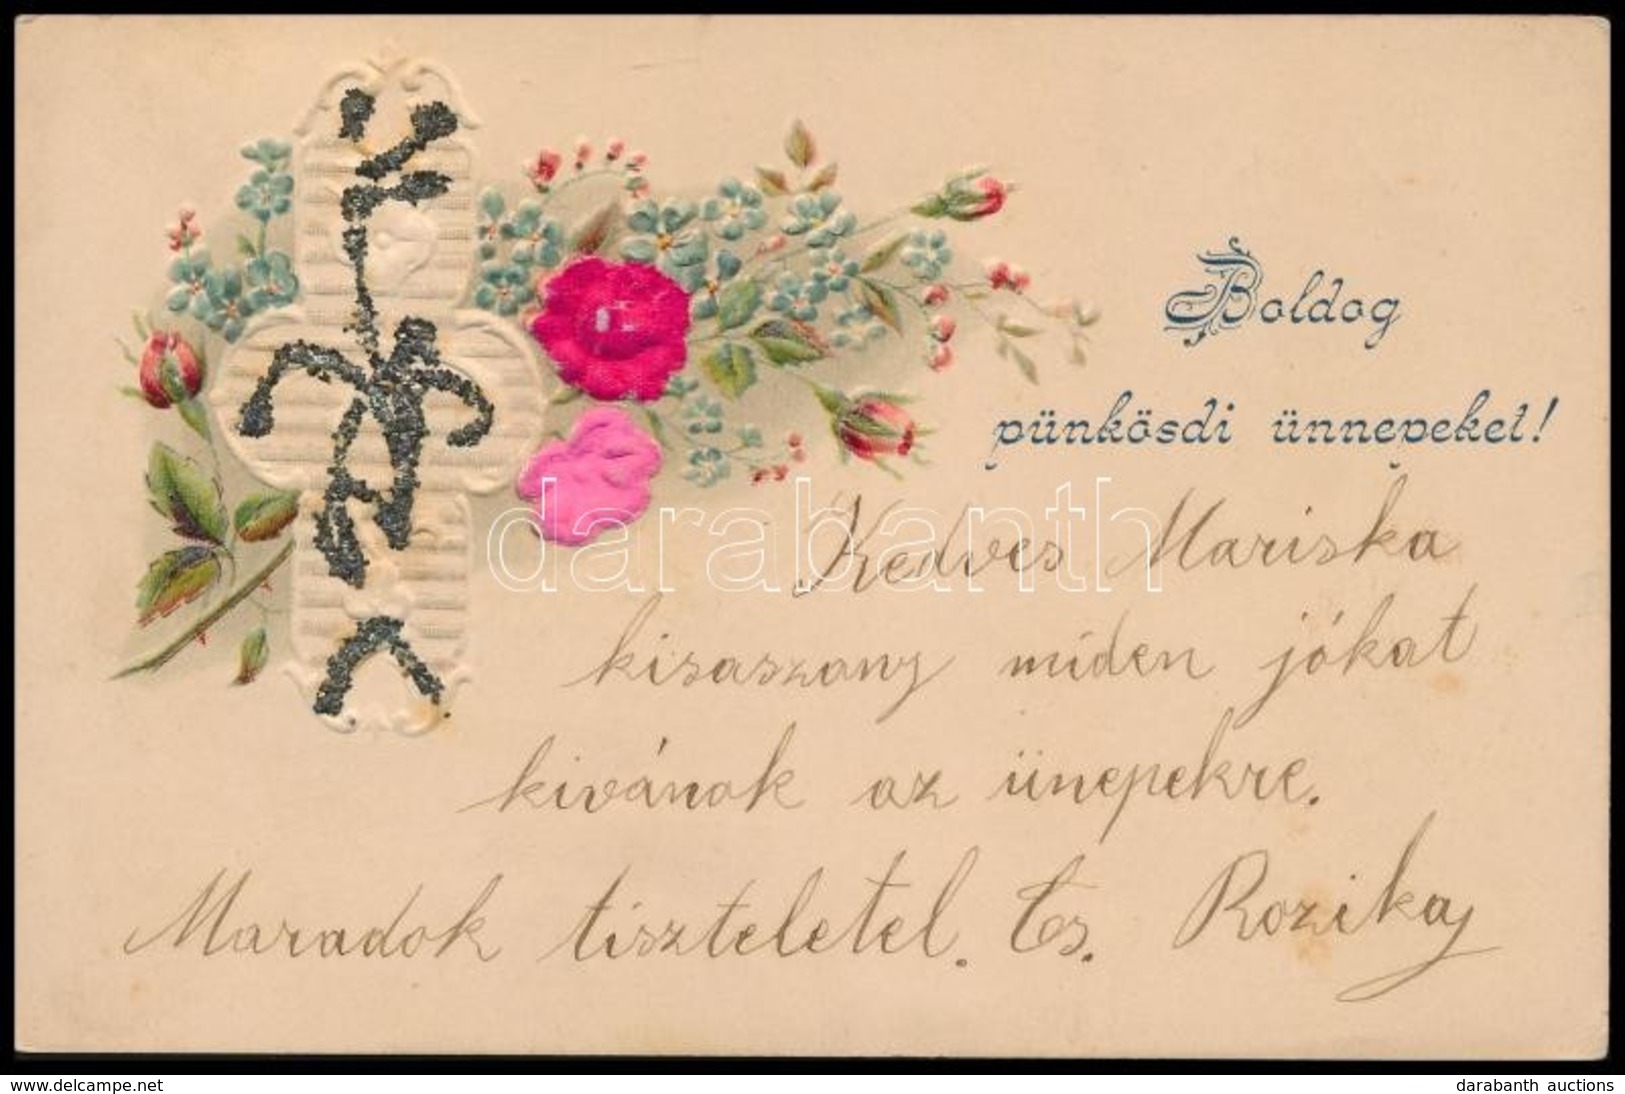 Boldog
pünkösdi ünnepeket!
Kedves Mariska
kisaszony miden jókat
kivánok az ünepekre.
Maradok tiszteletel. Cs. Rozika
darabanth
www.delcampe.net
darabanth auctions